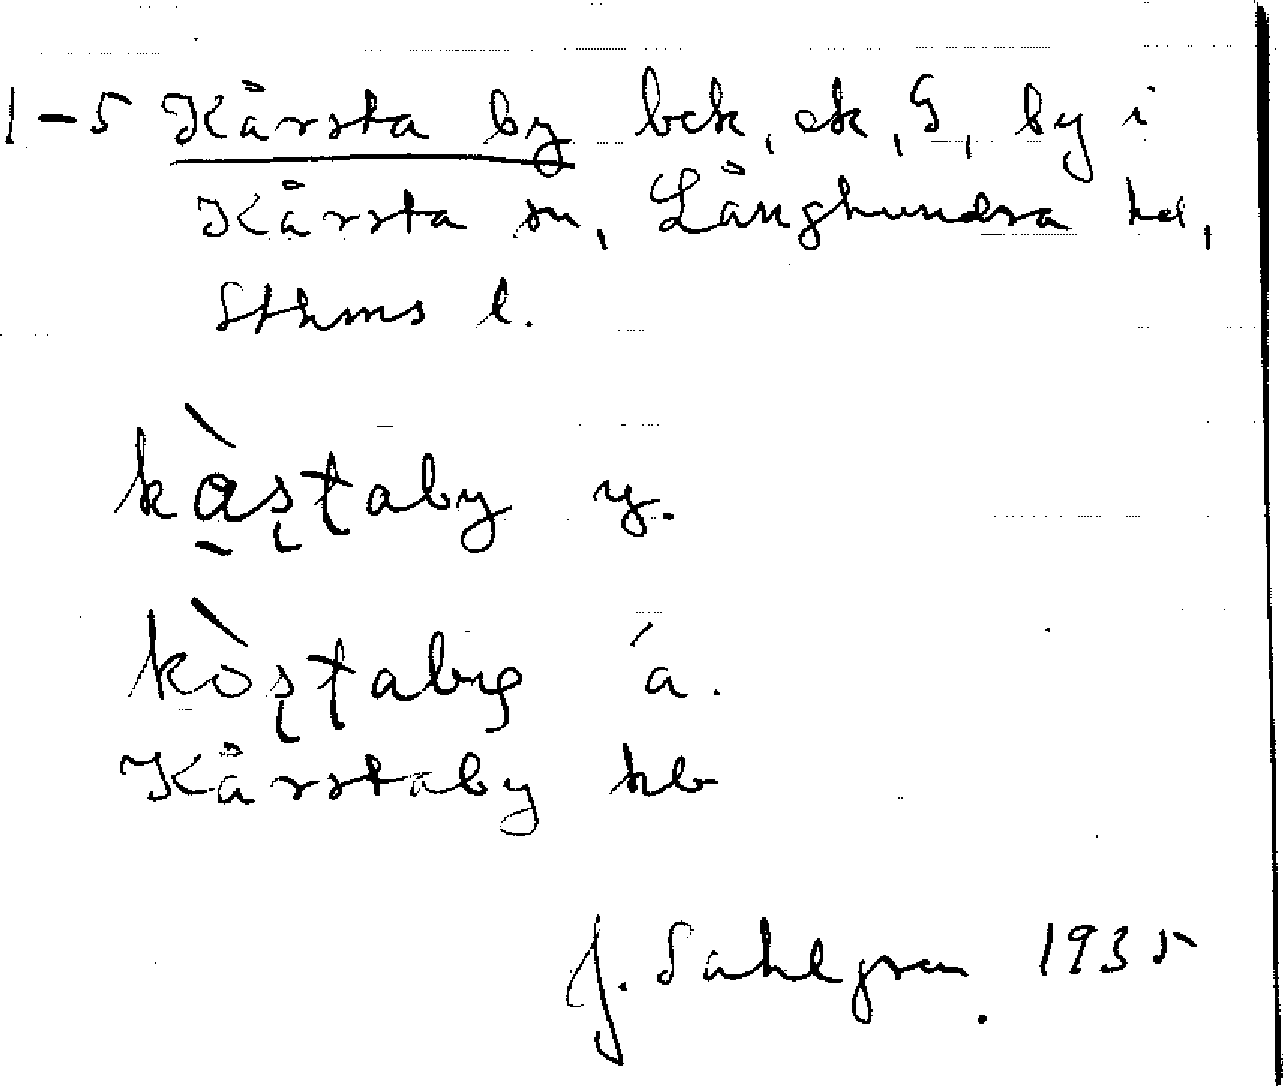 1–5 Kårsta by bck, ck, G, by i
Kårsta sn, Långhundra hd,
Sthms l.
kàṣṭaby y.
kòṣṭaby ä.
Kårstaby kb
J. Sahlgren. 1935